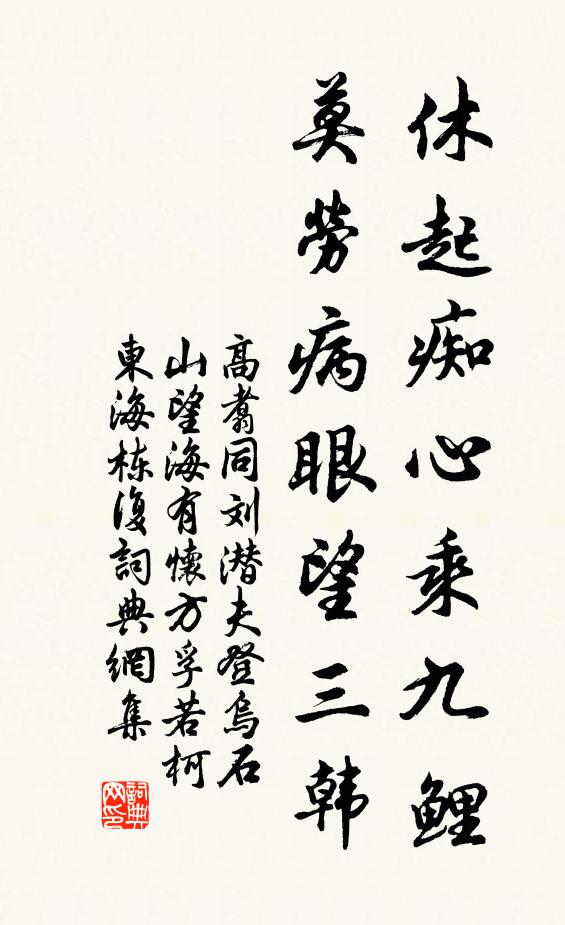 休起痴心乘九鲤
莫劳病眼望三韩
高翥同刘潜夫登乌石
山望海有懷方孚若柯
東海栋復詞典網集
詞典网印